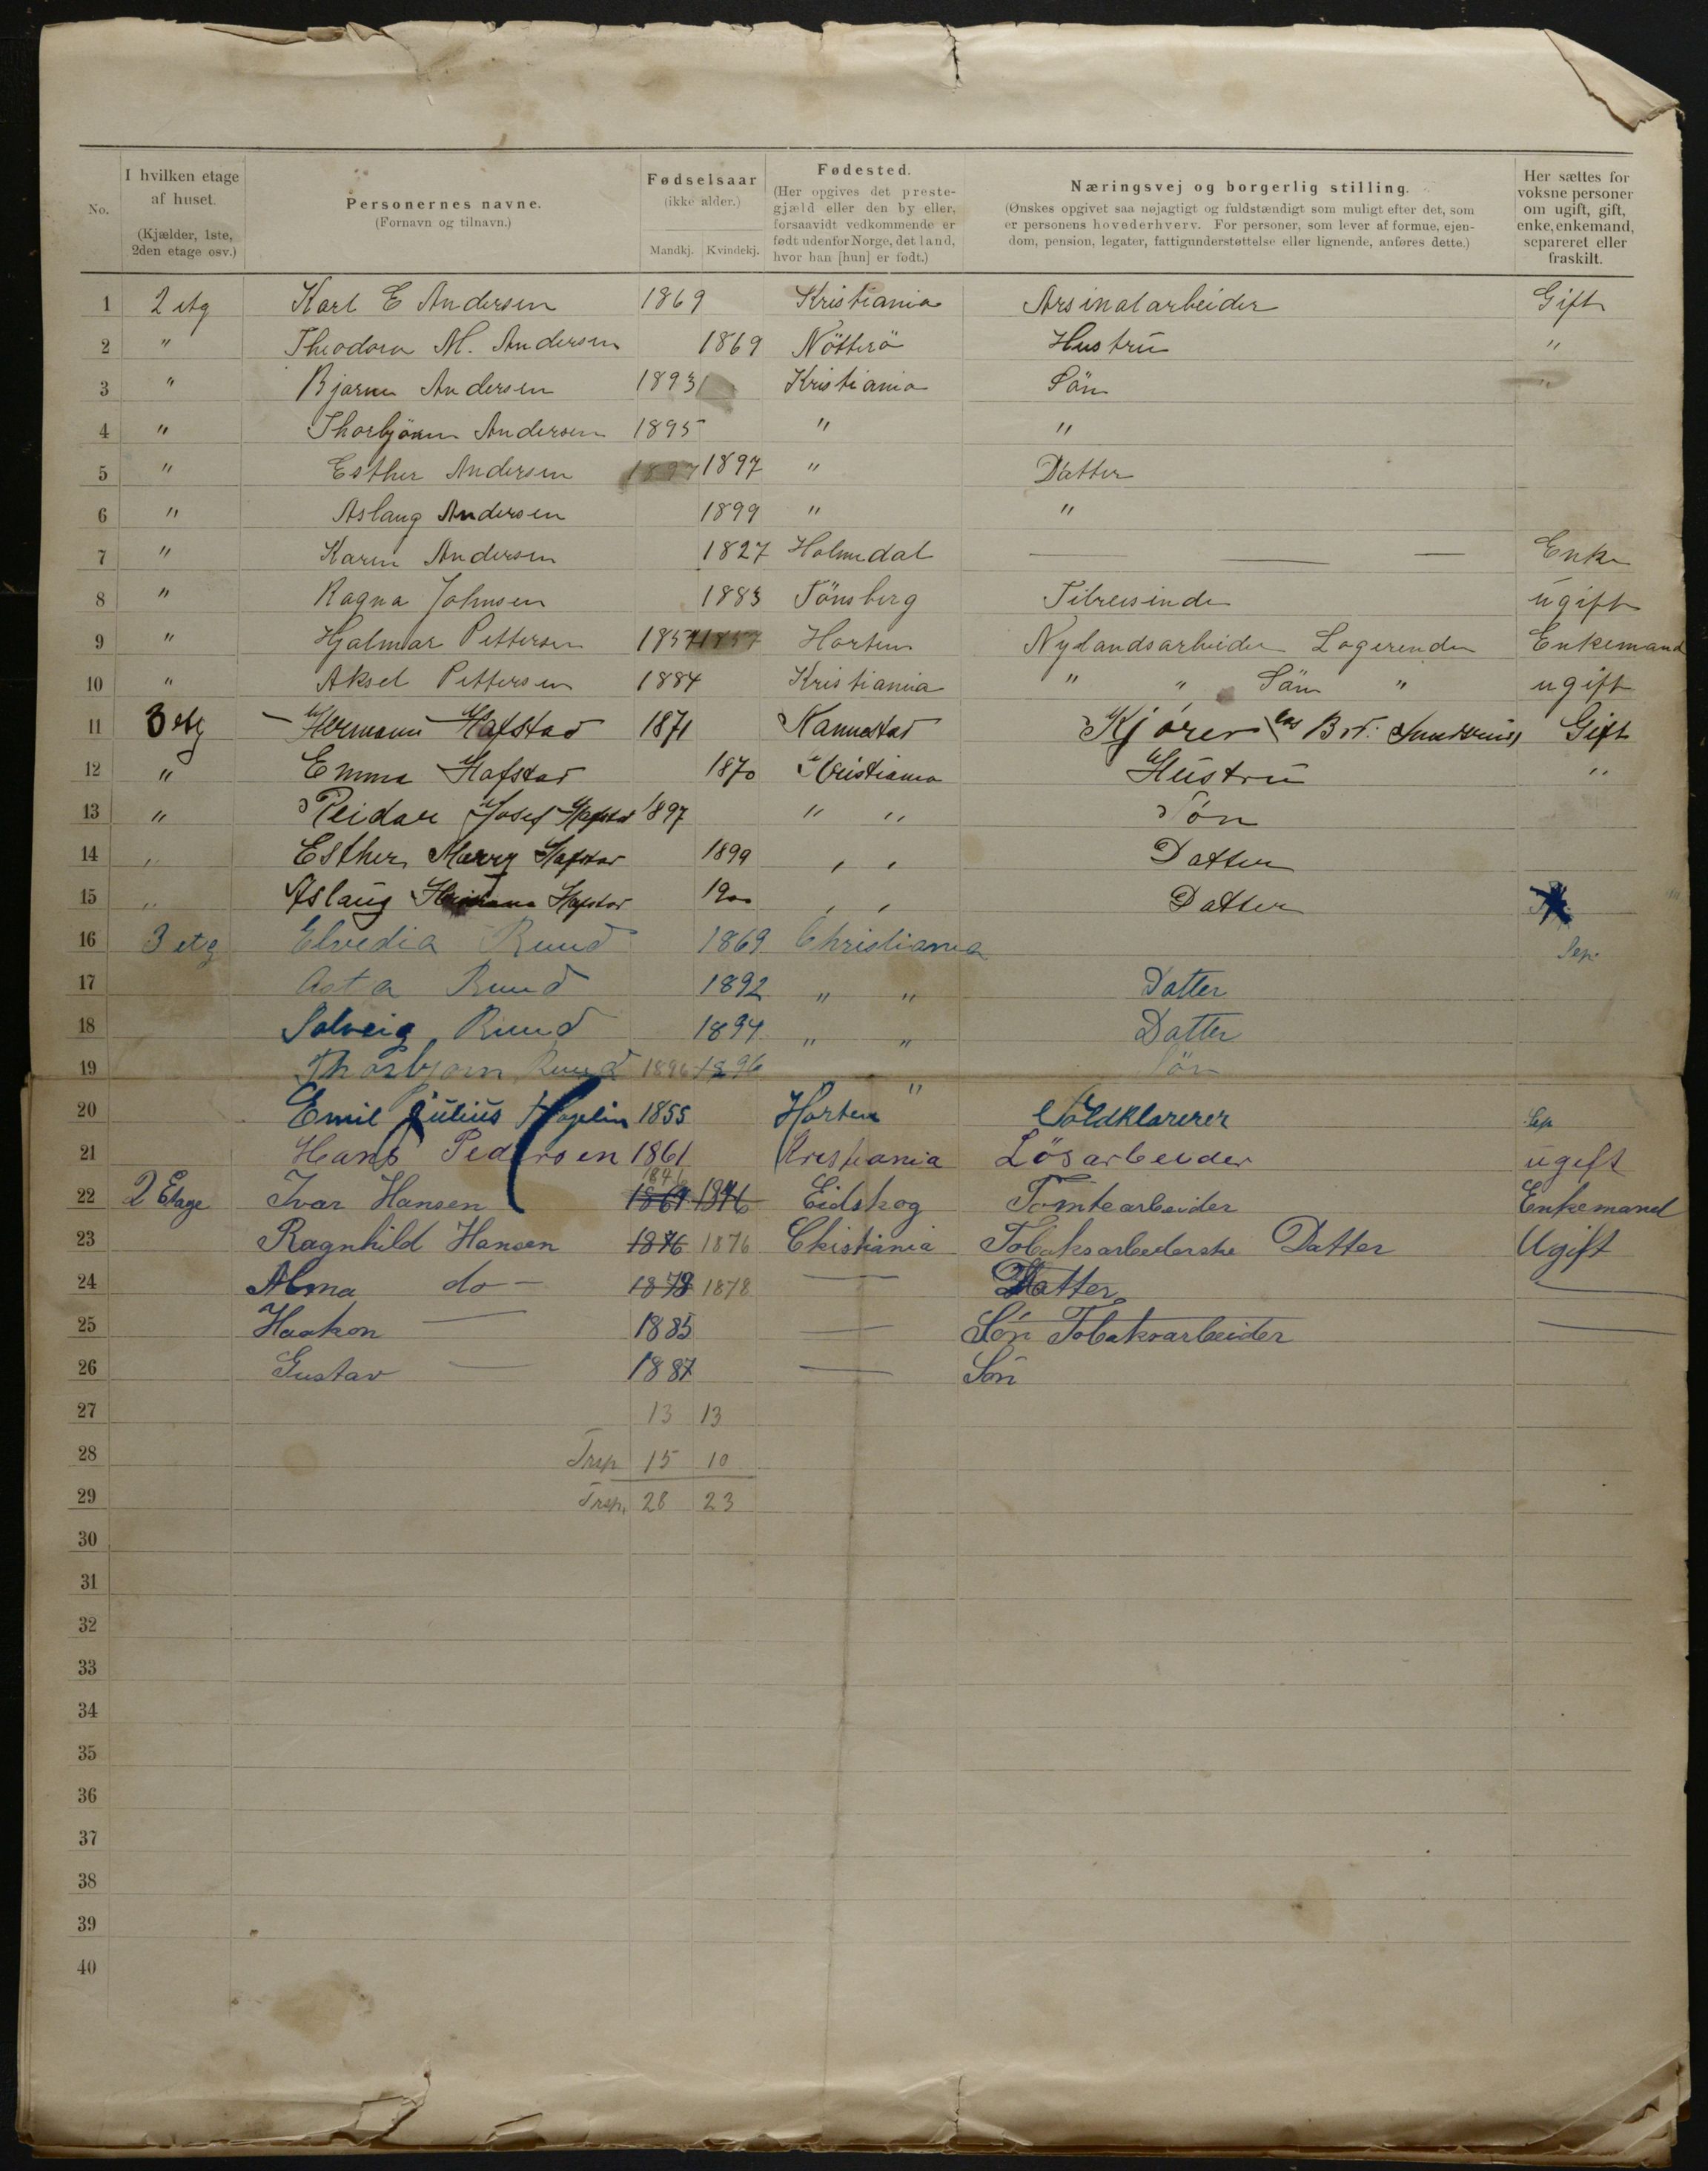 No. | I hvilken etage af huset. (Kjælder, 1ste, 2den etage osv.) | Personernes navne. (Fornavn og tilnavn.) | Fødselsaar (ikke alder.) Mandkj. Kvindekj. | Fødested. (Her opgives det prestegjæld eller den by eller, forsaavidt vedkommende er født udenfor Norge, det land, hvor han [hun] er født.) | Næringsvej og borgerlig stilling. (Ønskes opgivet saa nøjagtigt og fuldstændigt som muligt efter det, som er personens hovederhverv. For personer, som lever af formue, ejendom, pension, legater, fattigunderstøttelse eller lignende, anføres dette.) | Her sættes for voksne personer om ugift, gift, enke, enkemand, separeret eller fraskilt.
1 2 etg Karl E Andersen 1869 Kristiania Arsinalarbeider Gift
2 " Theodora M. Andersen 1869 Nötterö Hustru "
3 " Bjarne Andersen 1893 Kristiania Sön "
4 " Thorbjörn Andersen 1895 " "
5 " Esther Andersen 1897 1897 " Datter
6 " Aslaug Andersen 1899 " "
7 " Karen Andersen 1827 Holmedal — — — Enke
8 " Ragna Johnsen 1883 Tönsberg Tilreisende ugift
9 " Hjalmar Pettersen 1857 1857 Horten Nylandsarbeider Logerende Enkemand
10 " Aksel Pettersen 1884 Kristiania " " Sön " ugift
11 3 etg Hermann Hafstad 1871 Kannestad Kjører Gift
12 " Emma Hafstad 1870 Kristiania Hustru "
13 " Reidar Josef Hafstad 1897 " " Søn
14 " Esther Marry Hafstad 1899 " " Datter
15 " Aslaug Hafstad 1900 " " Datter
16 3 etg Elvedia Ruud 1869 Christiania Sep.
17 Asta Ruud 1892 " " Datter
18 Solveig Ruud 1894 " " Datter
19 Thorbjørn Ruud 1896 1896 " Søn
20 Emil Julius Hagelin 1855 Horten Toldklarerer Sep
21 Hans Pedersen 1861 Kristiania Lösarbeider ugift
22 2 Etage Ivar Hansen 1846 1861 1846 Eidskog Tomtearbeider Enkemand
23 Ragnhild Hansen 1876 1876 Christiania Tobaksarbeiderske Datter Ugift
24 Alma do — 1878 1878 — Datter —
25 Haakon — 1885 — Sön Tobaksarbeider —
26 Gustav — 1887 — Sön
27 13 13
28 Trsp 15 10
29 Trsp. 28 23
30
31
32
33
34
35
36
37
38
39
40